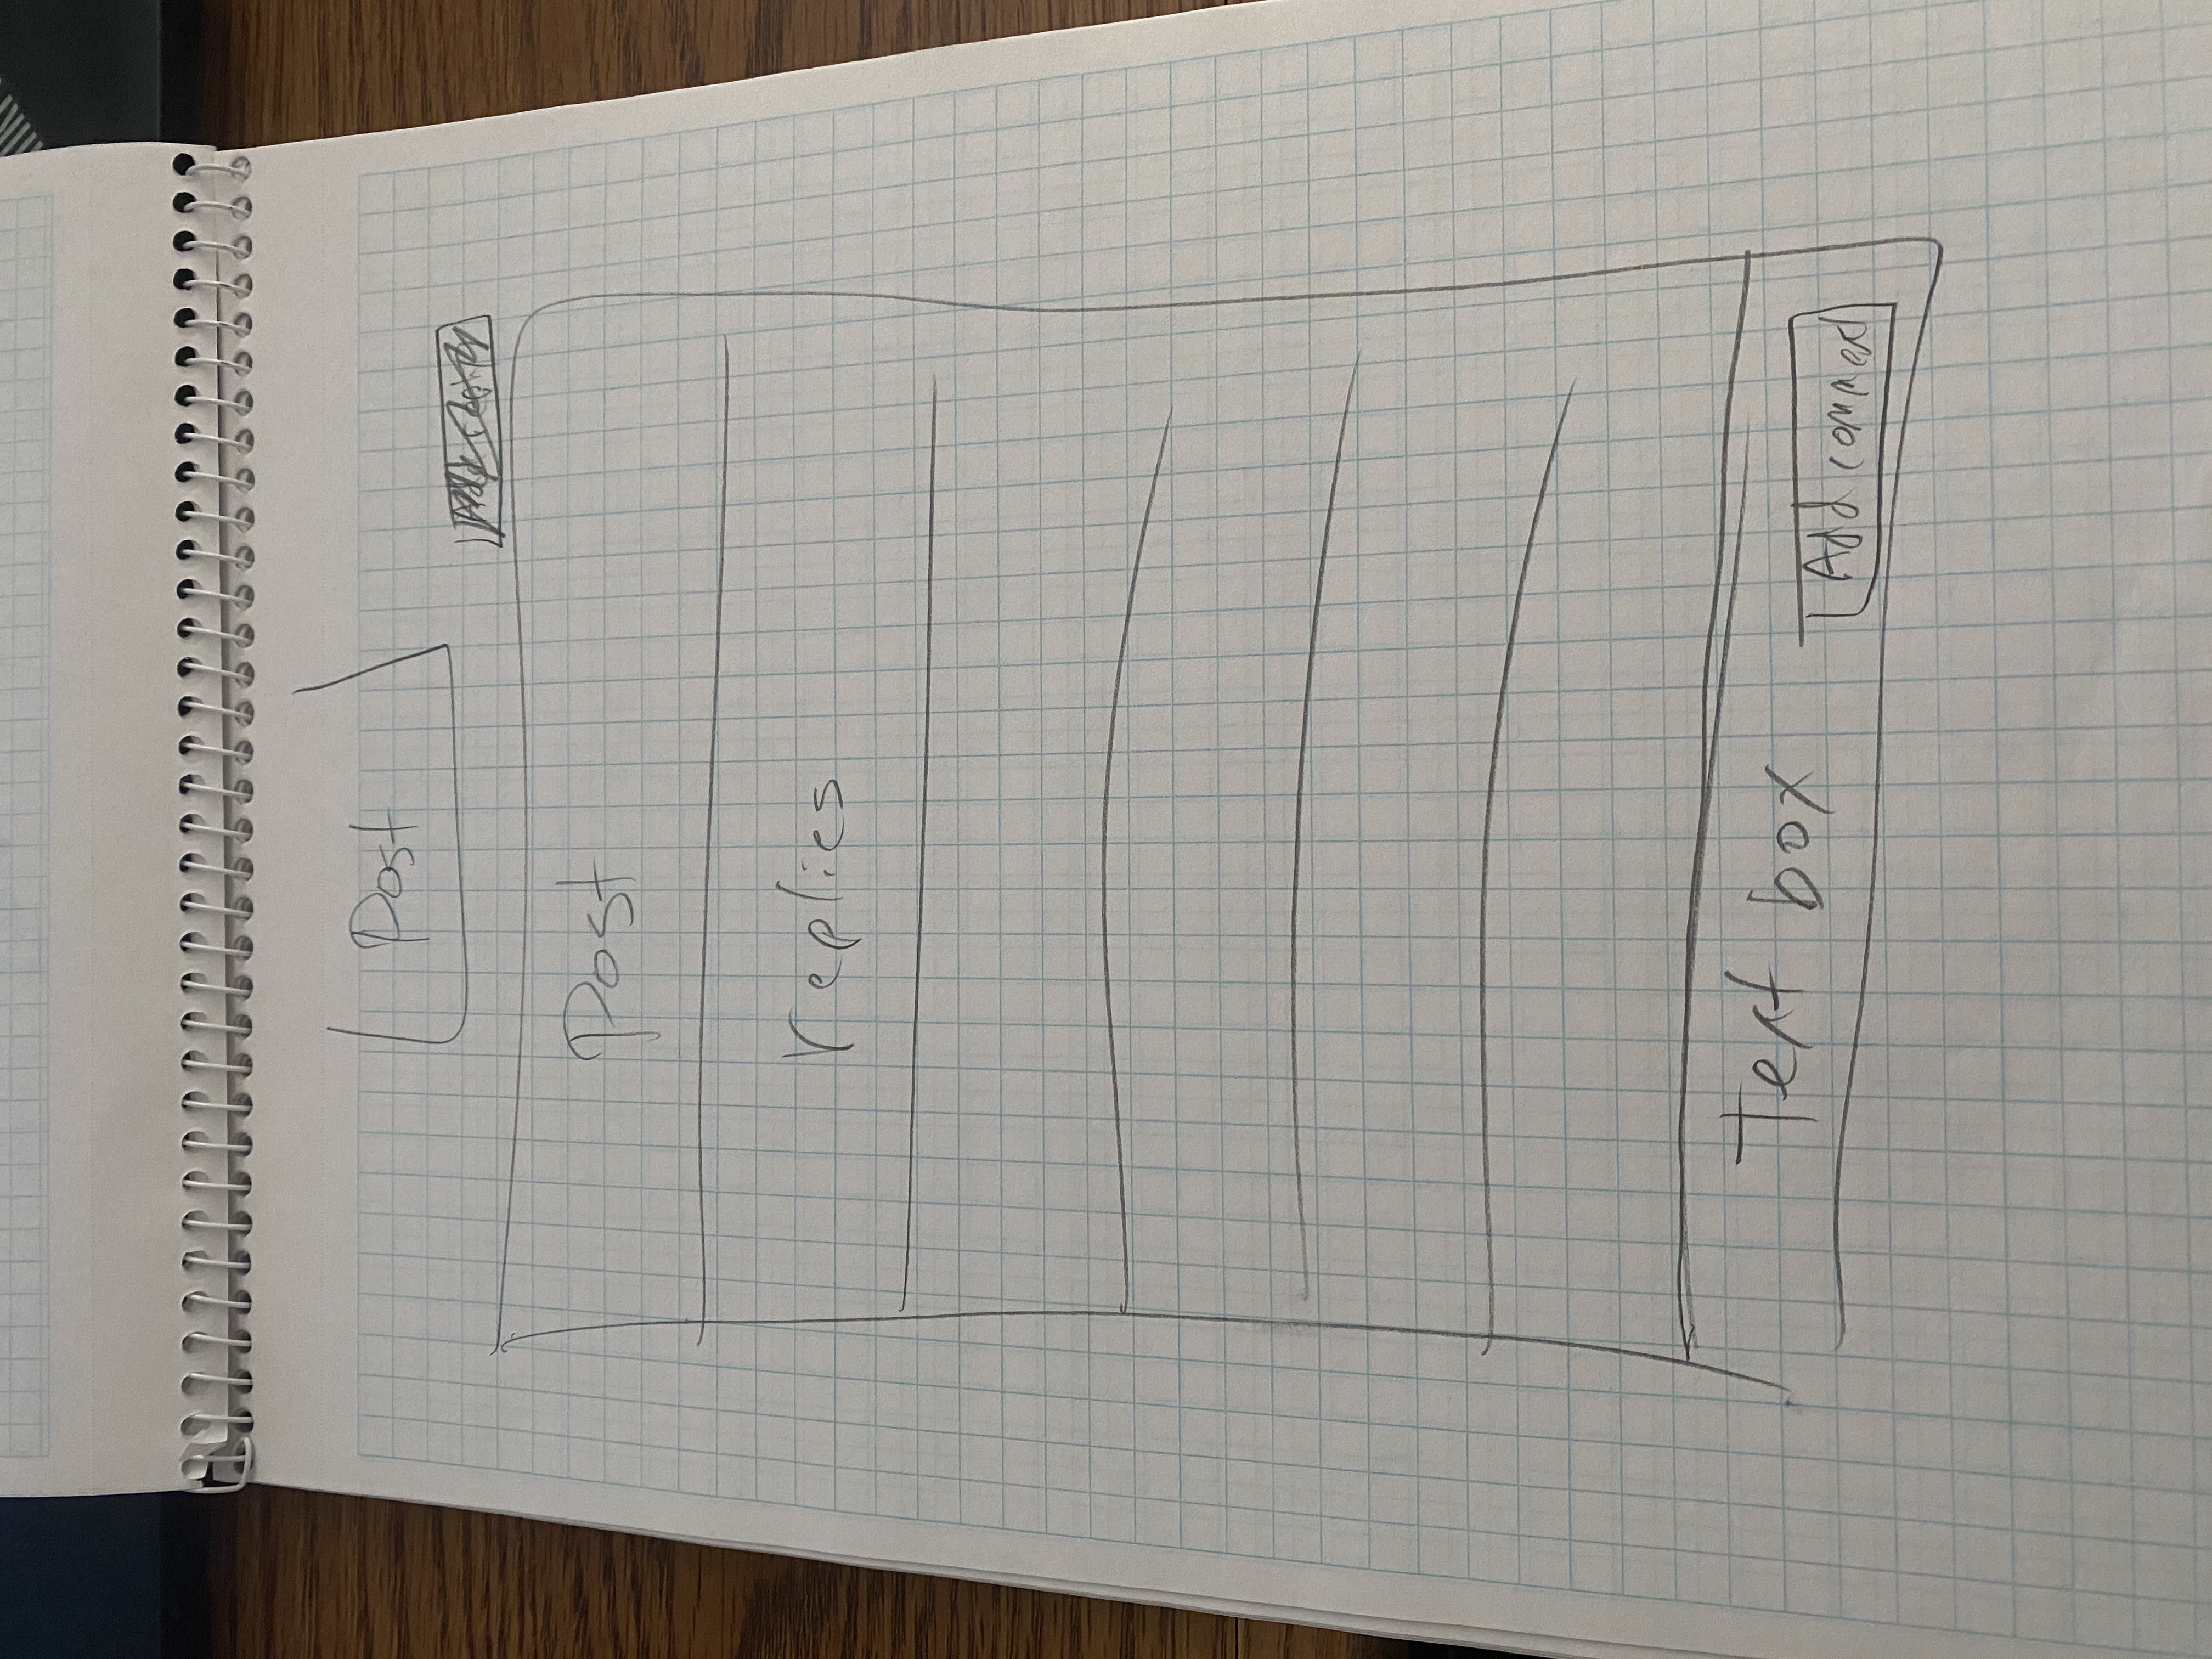 Post
Post
replies
Text box
Add comment